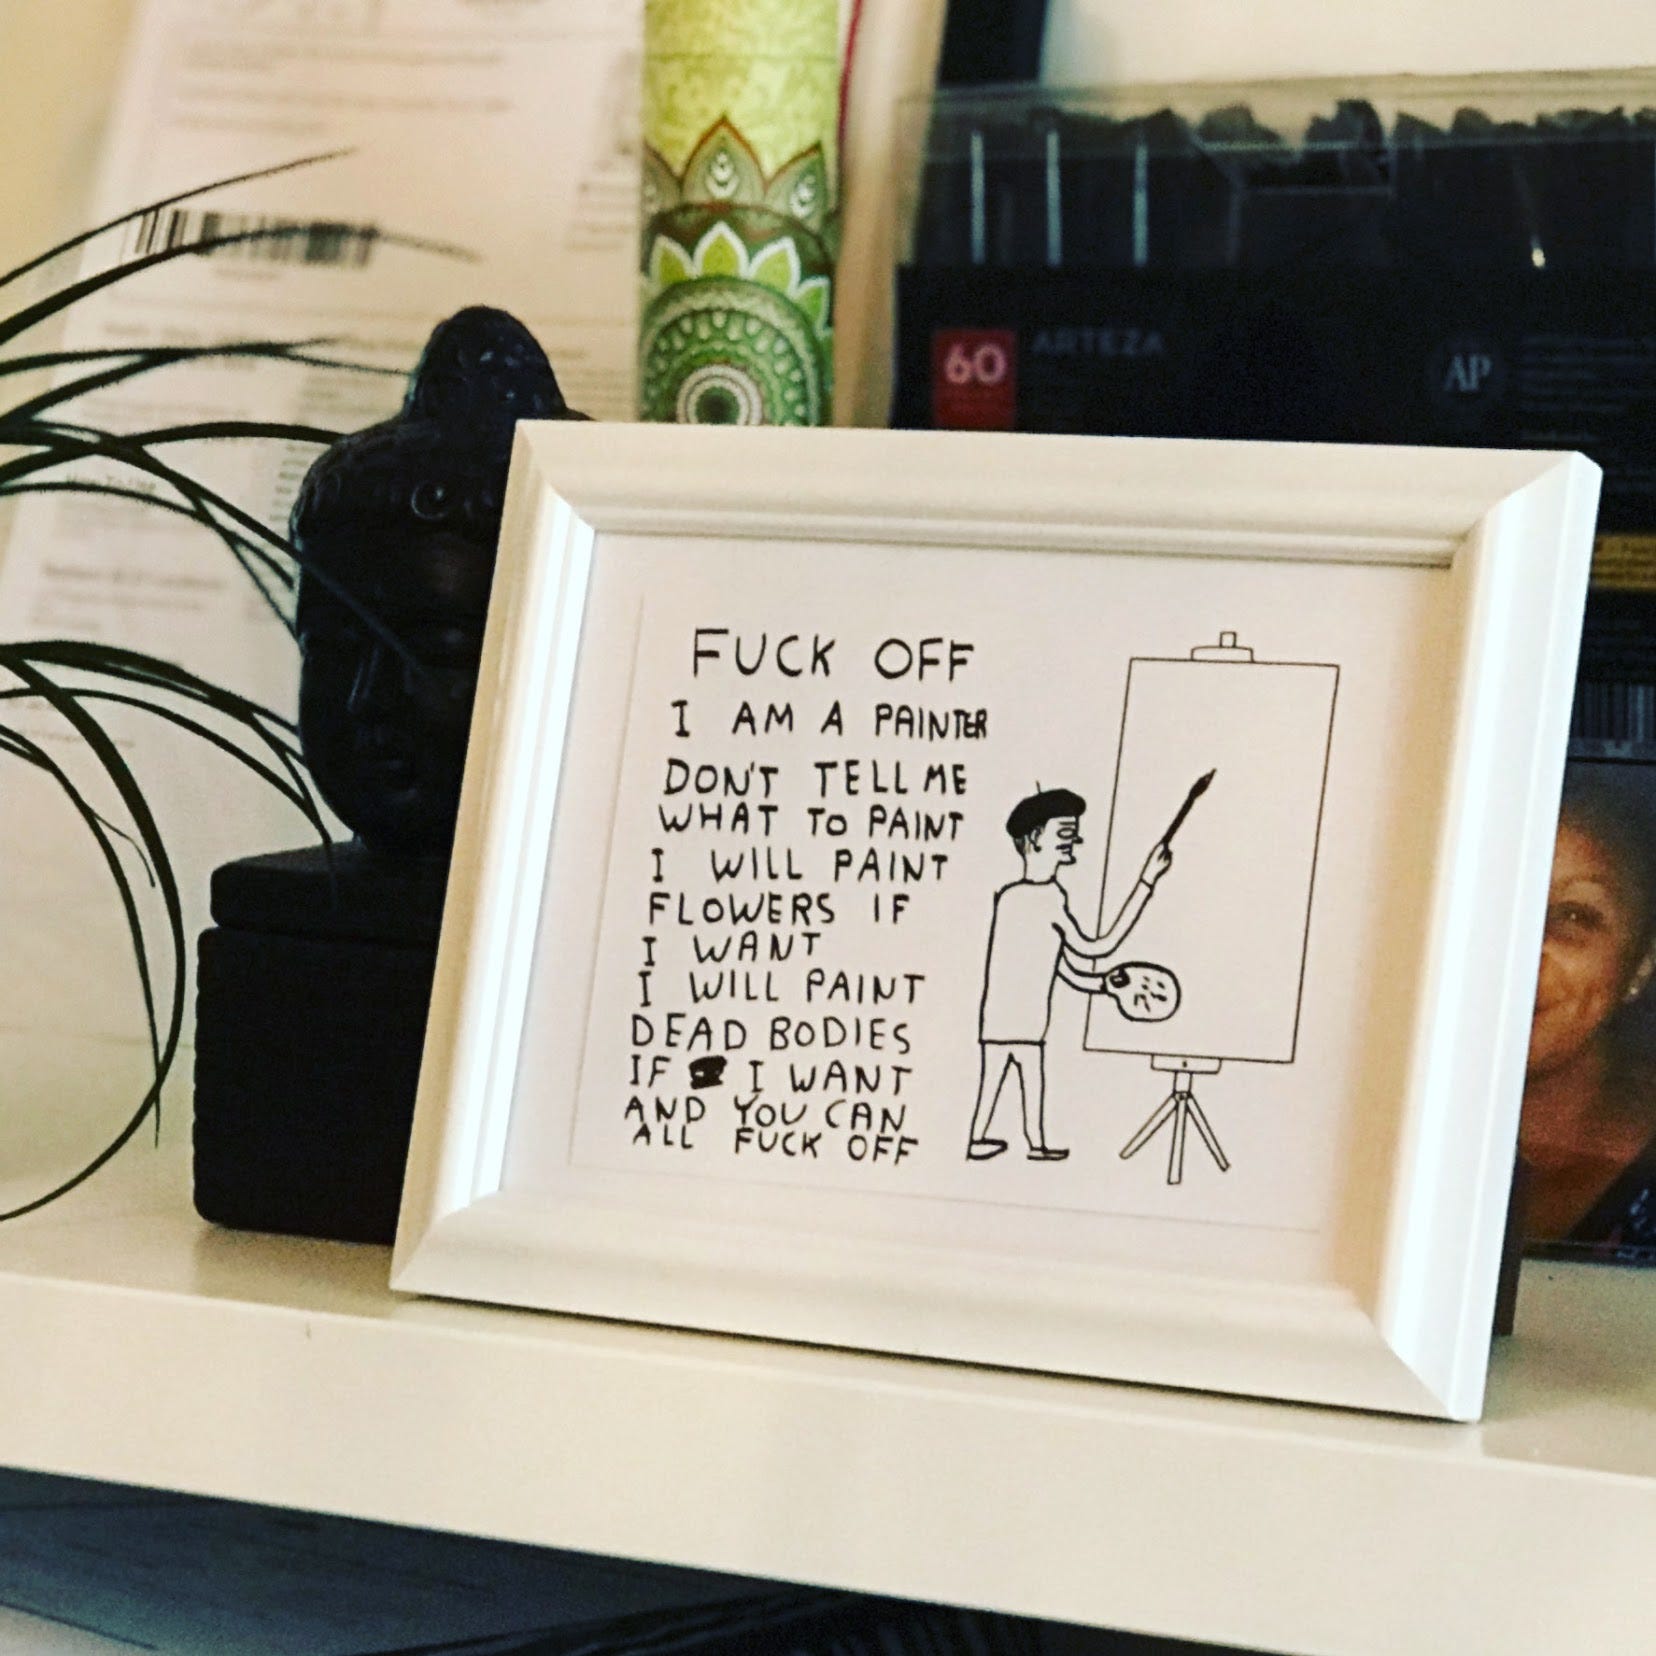 60
ARTEZA
AP
FUCK OFF
I AM A PAINTER
DON'T TELL ME
WHAT TO PAINT
I WILL PAINT
FLOWERS IF
I WANT
I WILL PAINT
DEAD BODIES
IF I WANT
AND YOU CAN
ALL FUCK OFF